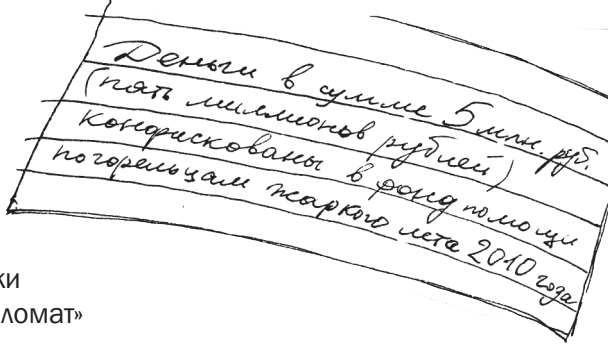 Деньги в сумме 5 млн. руб.
(пять миллионов рублей)
конфискованы в фонд помощи
погорельцам жаркого лета 2010 года
ки
ломат»